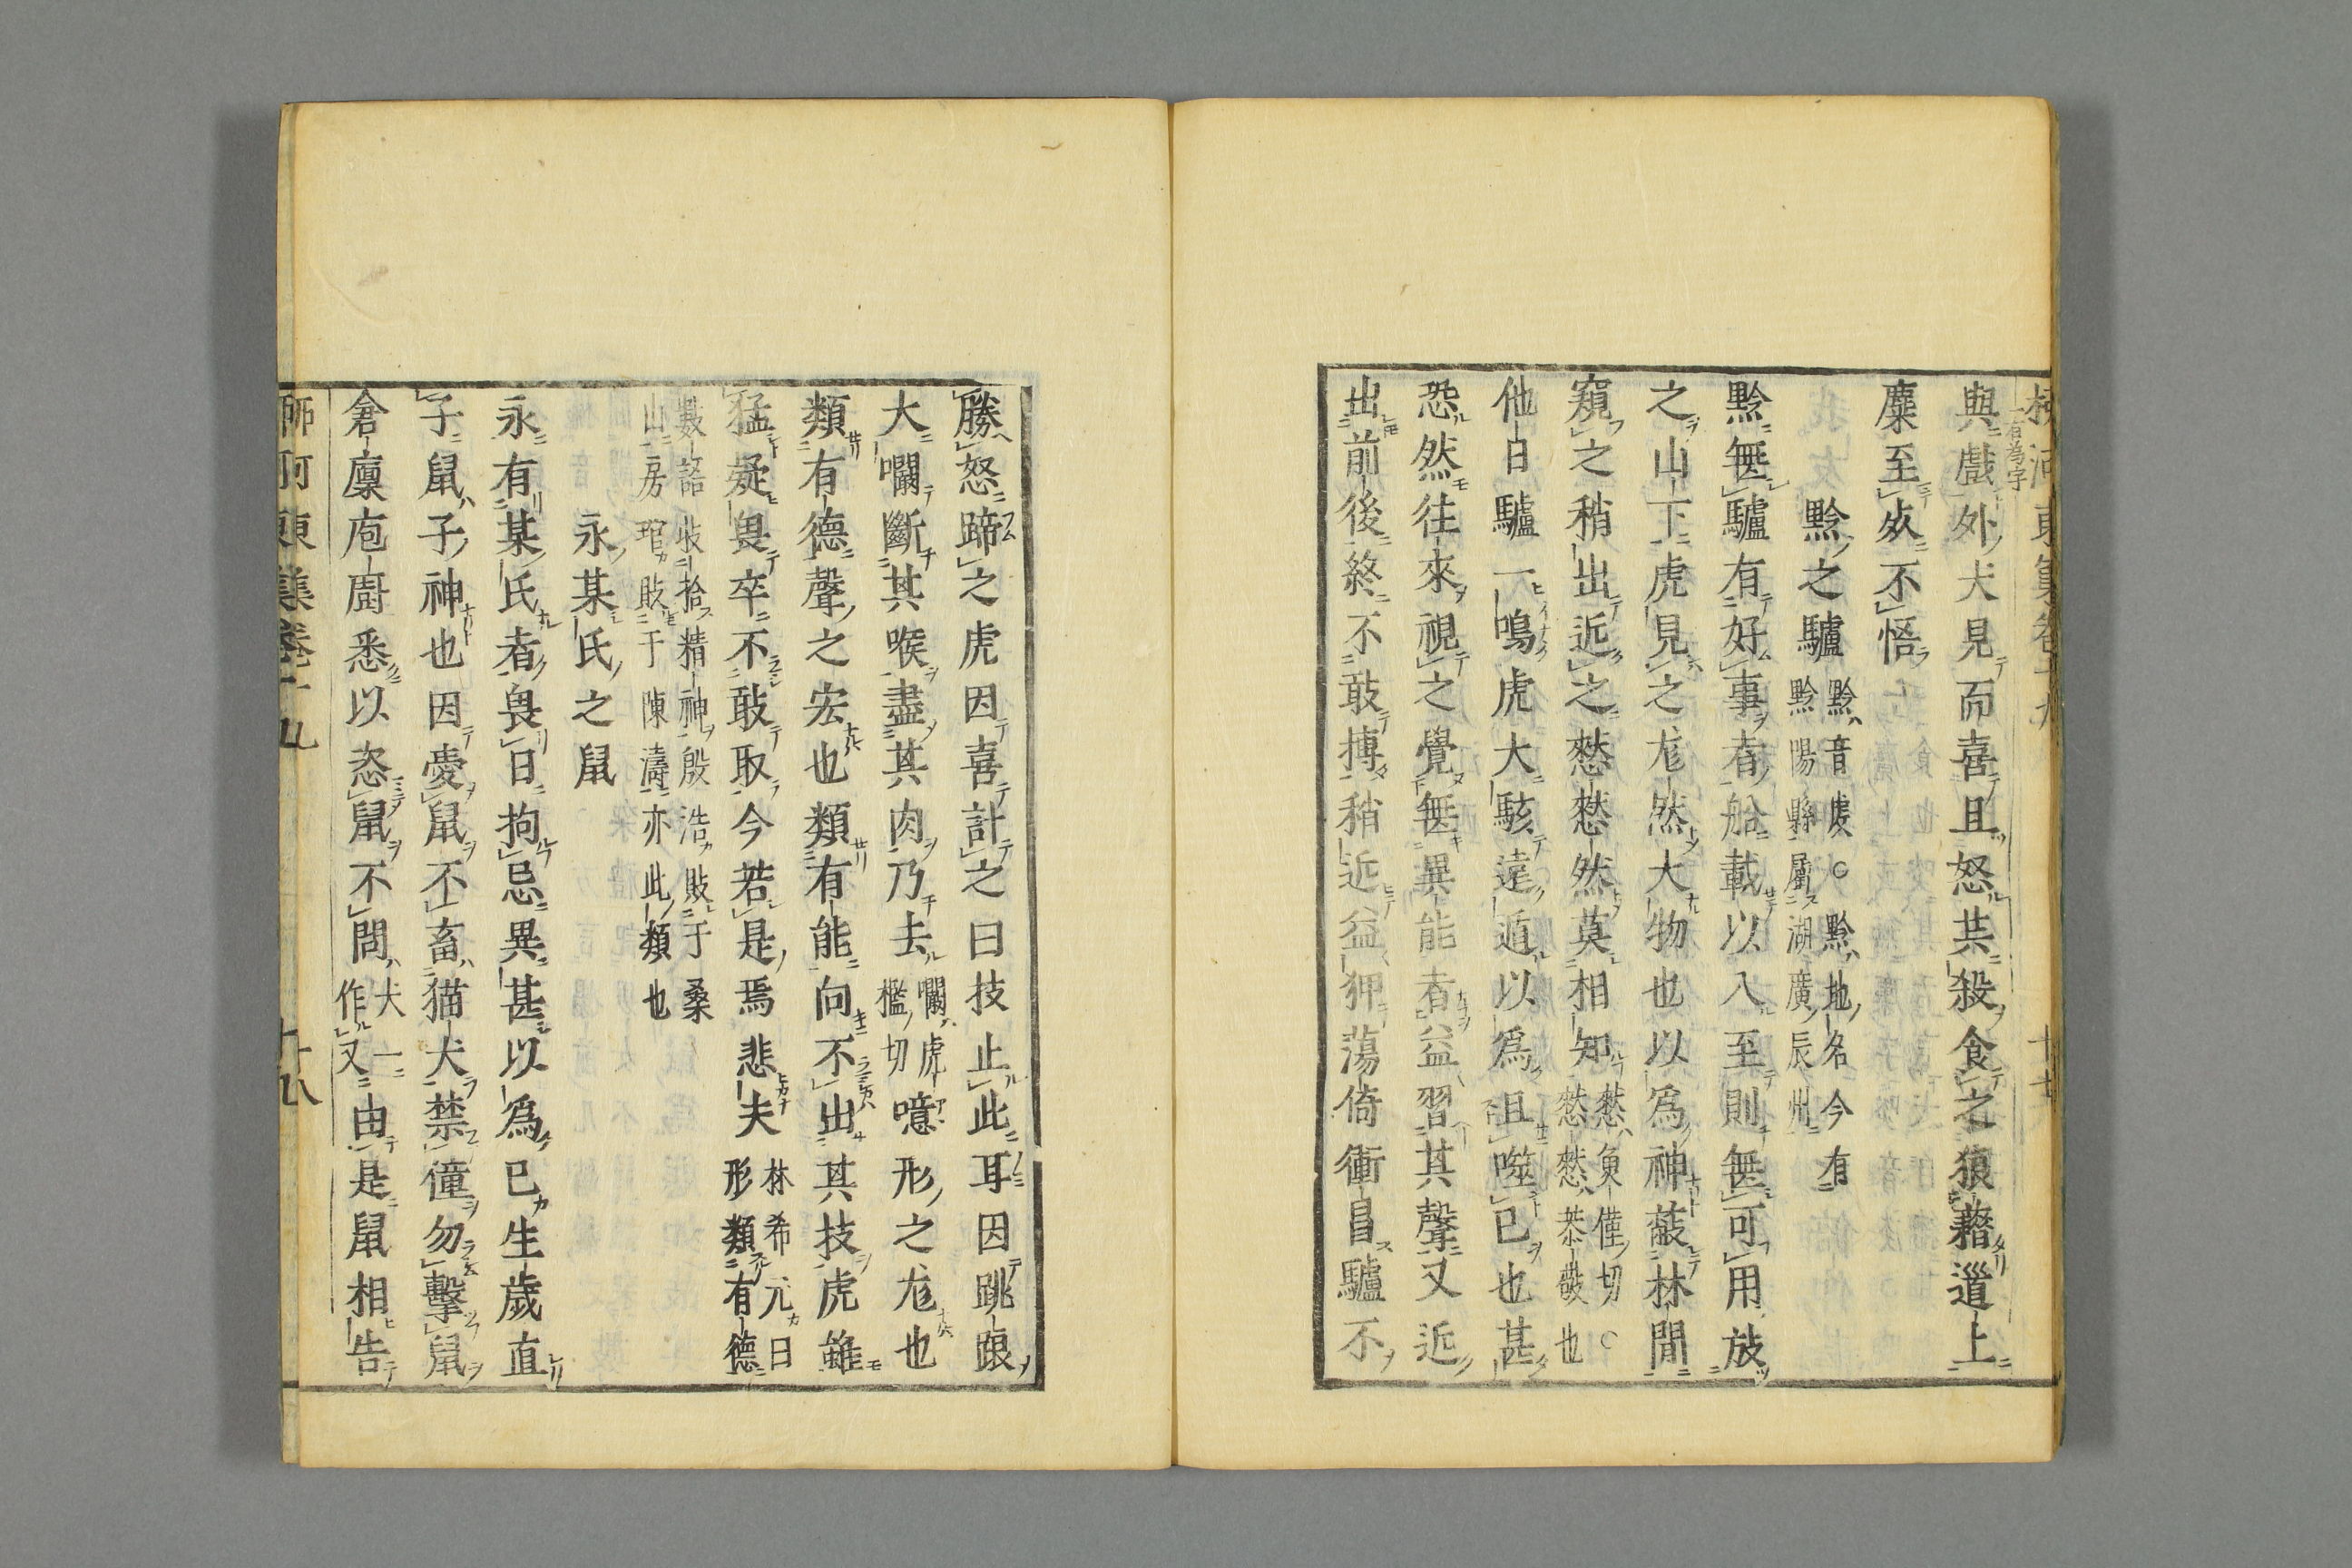 與戲外犬見而喜且怒共殺食之狼藉道上
麋至死不悟
黔之驢
黔音虔○黔地名今有
黔陽縣屬湖廣辰州
黔無驢有好事者船載以入至則無可用放
之山下虎見之尨然大物也以為神蔽林間
窺之稍出近之憖憖然莫相知
憖魚僅切○
憖憖恭敬也
他日驢一鳴虎大駭遠遁以為且噬己也甚
恐然往來視之覺無異能者益習其聲又近
出前後終不敢搏稍近益狎蕩倚衝冒驢不
勝怒蹄之虎因喜計之曰技止此耳因跳踉
大㘚斷其喉盡其肉乃去
㘚虎
檻切
噫形之尨也
類有德聲之宏也類有能向不出其技虎雖
猛疑畏卒不敢取今若是焉悲夫
林希元曰
形類有德
數語收拾精神殷浩敗于桑
山房琯敗于陳濤亦此類也
永某氏之鼠
永有某氏者畏日拘忌異甚以為己生歲直
子鼠子神也因愛鼠不畜猫犬禁僮勿擊鼠
倉廩庖廚悉以恣鼠不問
犬一
作又
由是鼠相告
柳河東集卷十九
十八